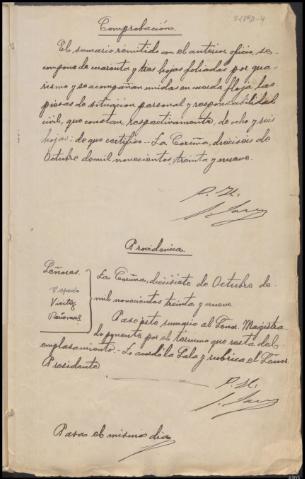 Comprobación.
El sumario remitido con el anterior oficio, se
compone de cuarenta y tres hojas foliadas por gua-
rismo y se acompañan unidas en cuerda floja las
piezas de situación personal y responsabilidad
civil, que constan, respectivamente, de ocho y seis
hojas: de que certifico.- La Coruña, dieciseis de
Octubre de mil novecientos treinta y nueve.
Providencia
Señores.
La Coruña, diecisiete de Octubre de
mil novecientos treinta y nueve
Pase este sumario al Señor Magistra-
do ponente por el termino que resta del
emplazamiento.- Lo acordó la Sala y rubrica el Señor
Presidente
Pasa el mismo dia